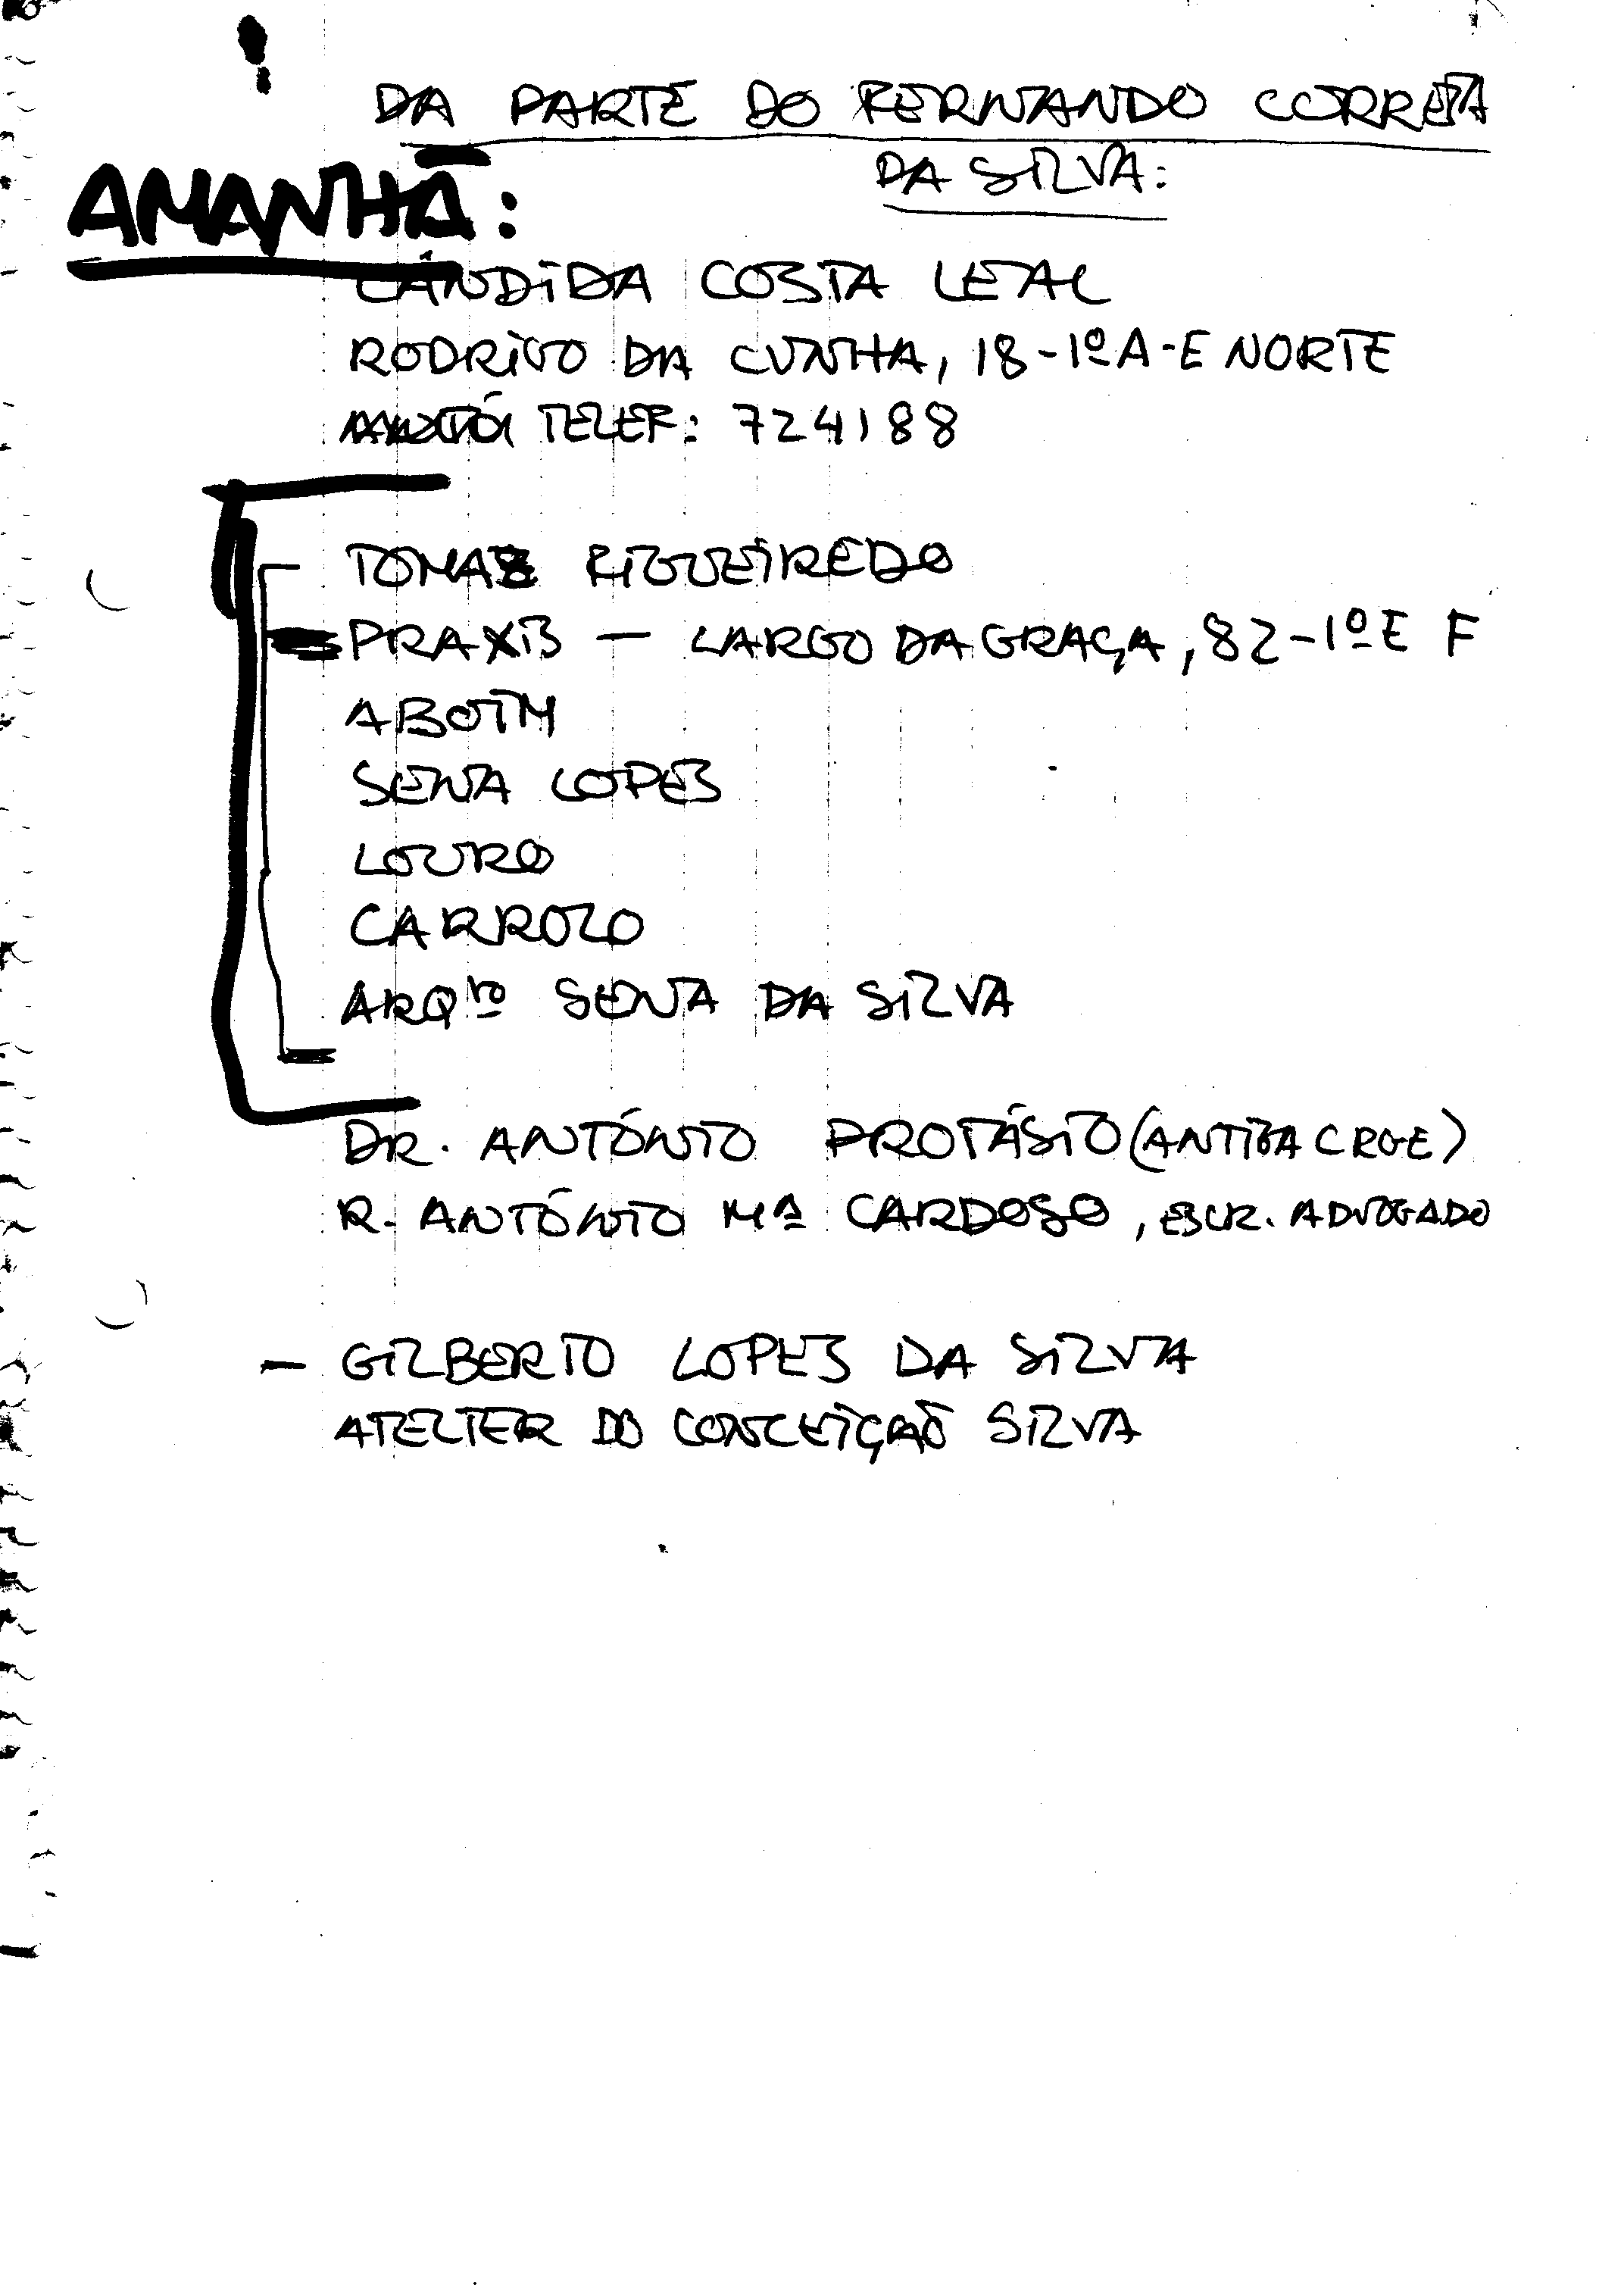 DA PARTE DO FERNANDO CORREIA
DA SILVA:
AMANHÃ:
CÂNDIDA COSTA LEAL
RODRIGO DA CUNHA, 18-1º A-E NORTE
TELEF: 724188
TOMAZ FIGUEIREDO
PRAXIS — LARGO DA GRAÇA, 82-1º E F
ABOIM
SENA LOPES
LOURO
CARROLO
ARQ<sup>to</sup> SENA DA SILVA
DR. ANTÓNIO PROTÁSIO (ANTIGA CRGE)
R. ANTÓNIO Mª CARDOSO, ESCR. ADVOGADO
— GILBERTO LOPES DA SILVA
ATELIER DO CONCEIÇÃO SILVA